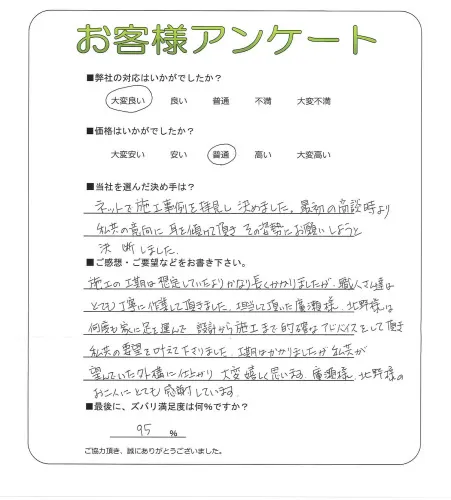 お客様アンケート
■弊社の対応はいかがでしたか？
大変良い　良い　普通　不満　大変不満
■価格はいかがでしたか？
大変安い　安い　普通　高い　大変高い
■当社を選んだ決め手は？
ネットで施工事例を拝見し決めました。最初の商談時より
私共の意向に耳を傾けて頂きその姿勢にお願いしようと
決断しました。
■ご感想・ご要望などをお書き下さい。
施工の工期は想定していたよりかなり長くかかりましたが、職人さん達は
とても丁寧に作業して頂きました。担当して頂いた廣瀬様、北野様は
何度も家に足を運んで 設計から施工まで的確なアドバイスをして頂き
私共の要望を叶えて下さりました。工期はかかりましたが私共が
望んでいた外構に仕上がり大変嬉しく思います。廣瀬様、北野様の
お二人にとても感謝しています。
■最後に、ズバリ満足度は何％ですか？
95 ％
ご協力頂き、誠にありがとうございました。